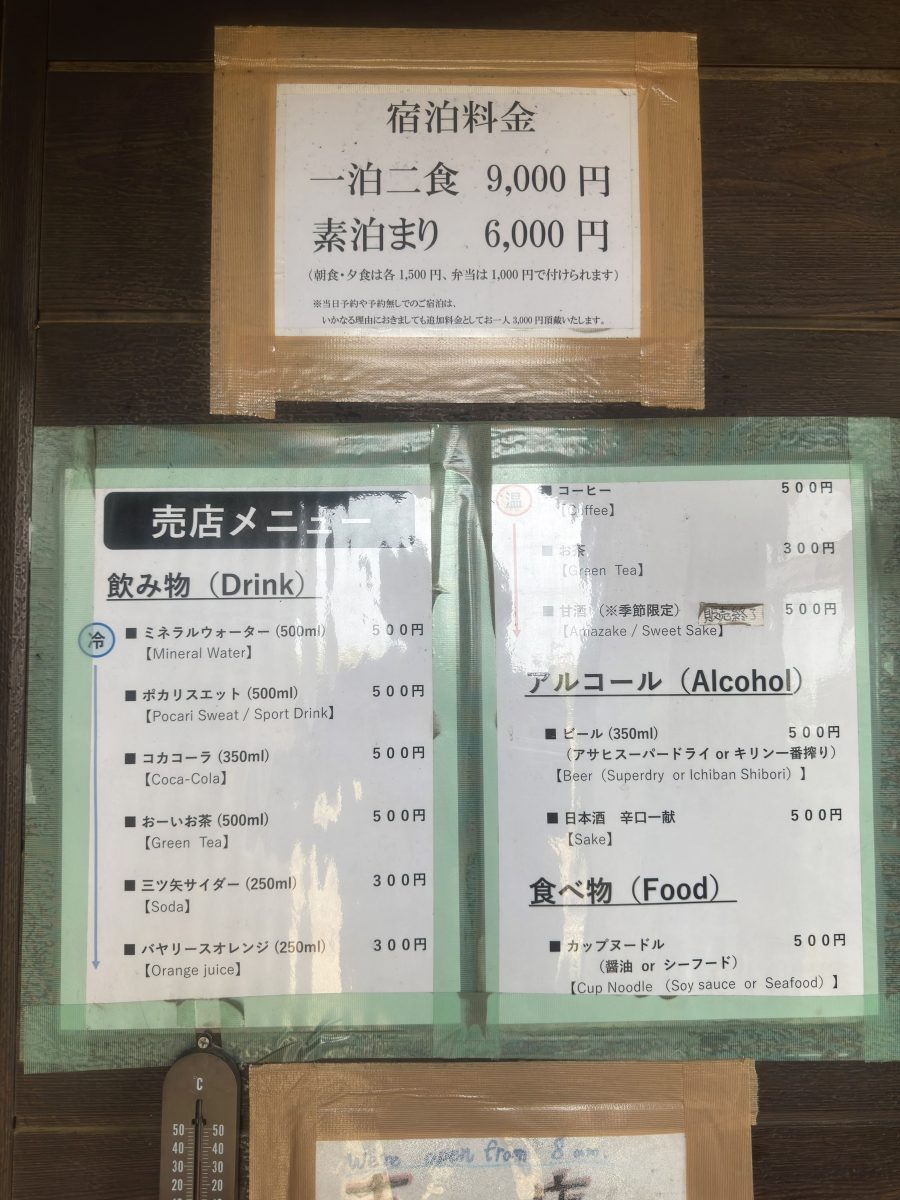 宿泊料金
一泊二食 9,000 円
素泊まり 6,000 円
（朝食・夕食は各 1,500 円、弁当は 1,000 円で付けられます）
※当日予約や予約無しでのご宿泊は、
いかなる理由におきましても追加料金としてお一人 3,000 円頂戴いたします。
売店メニュー
飲み物（Drink）
冷
■ ミネラルウォーター (500ml) 500円
【Mineral Water】
■ ポカリスエット (500ml) 500円
【Pocari Sweat / Sport Drink】
■ コカコーラ (350ml) 500円
【Coca-Cola】
■ おーいお茶 (500ml) 500円
【Green Tea】
■ 三ツ矢サイダー (250ml) 300円
【Soda】
■ バヤリースオレンジ (250ml) 300円
【Orange juice】
温
■ コーヒー 500円
【Coffee】
■ お茶 300円
【Green Tea】
■ 甘酒（※季節限定） 販売終了 500円
【Amazake / Sweet Sake】
アルコール（Alcohol）
■ ビール (350ml) 500円
（アサヒスーパードライ or キリン一番搾り）
【Beer（Superdry or Ichiban Shibori）】
■ 日本酒 辛口一献 500円
【Sake】
食べ物（Food）
■ カップヌードル 500円
（醤油 or シーフード）
【Cup Noodle （Soy sauce or Seafood）】
℃
50 50
40 40
30 30
20 20
We're open from 8 am.